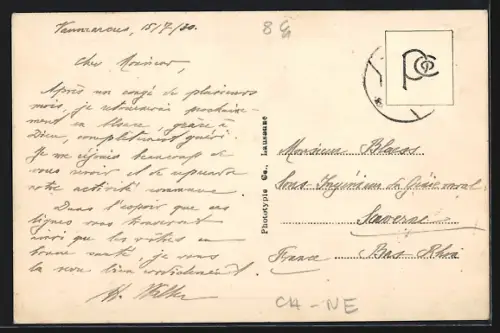 Vaumarcus, 15/7/30.
Cher Monsieur,
Après un congé de plusieurs
mois, je retournerai prochaine-
ment en Alsace, grâce à
Dieu, complètement guéri.
Je me réjouis beaucoup de
vous revoir et de reprendre
notre activité commune.
Dans l'espoir que ces
lignes vous trouvent
ainsi que les vôtres en
bonne santé, je vous
la serre bien cordialement.
Phototypie Co., Lausanne
PCo
Monsieur Blaess
Sous Ingénieur du Génie rural
Saverne
France Bas Rhin
CH-NE